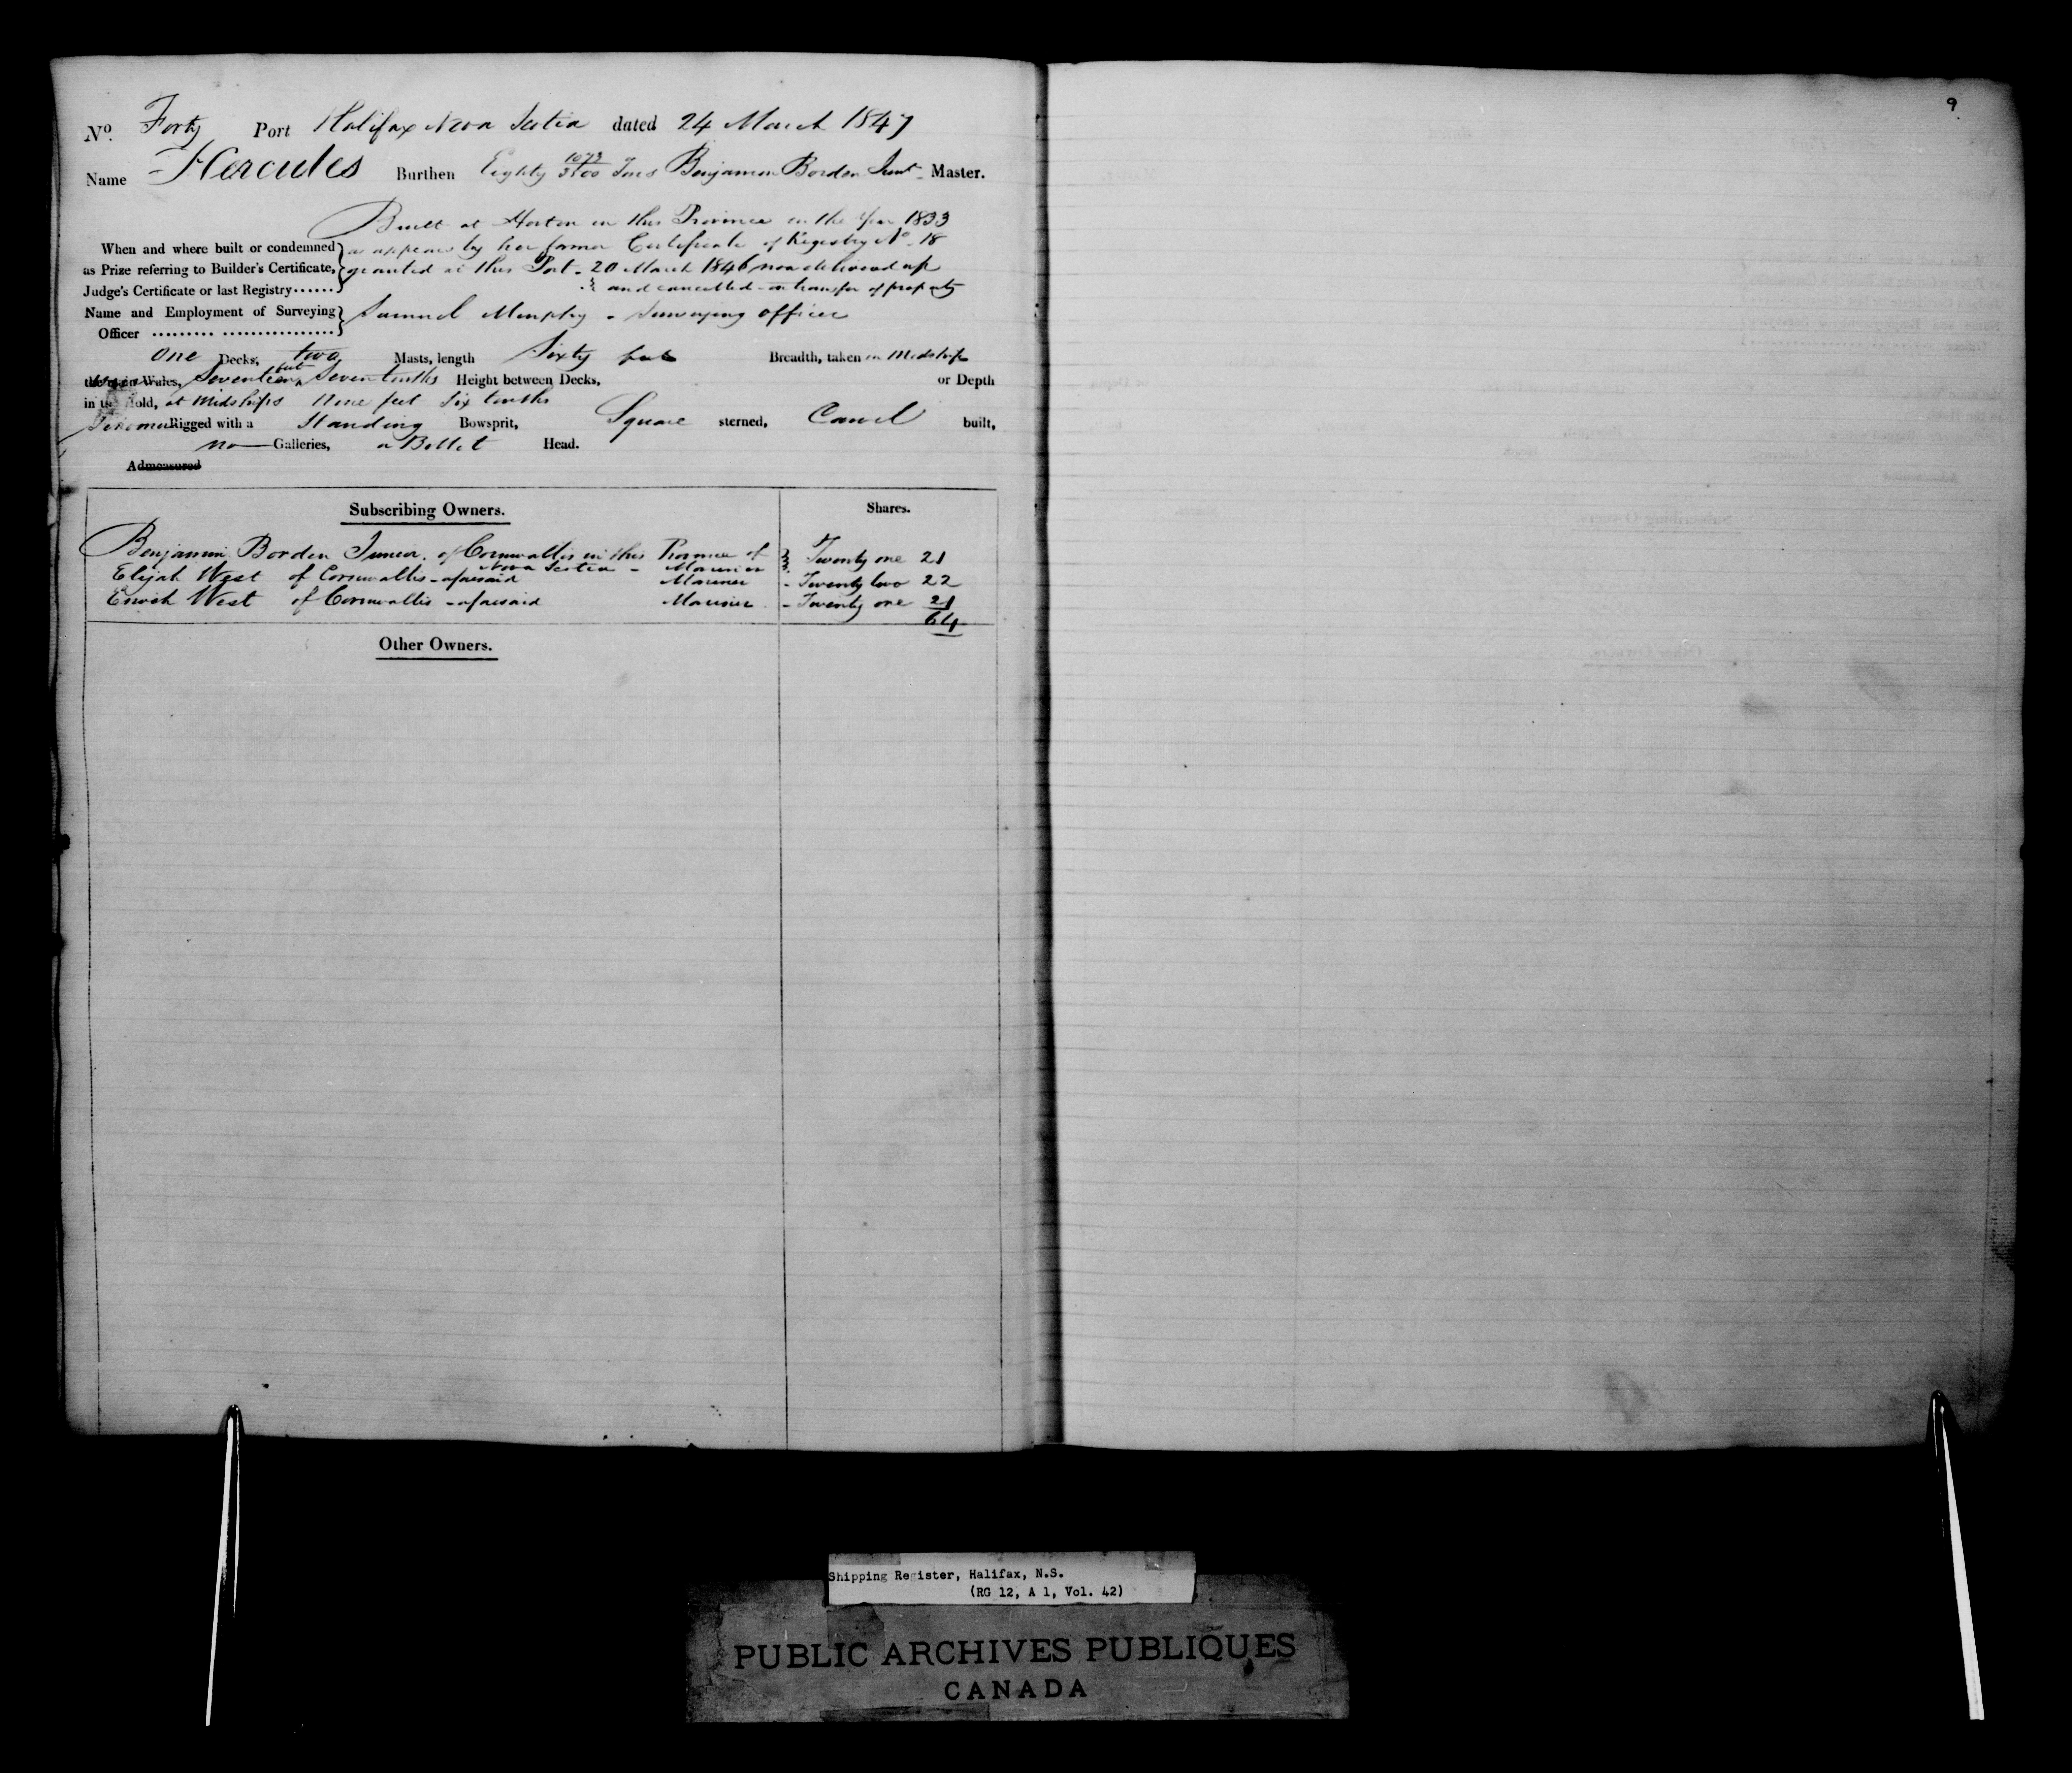 9
No. Forty Port Halifax Nova Scotia dated 24 March 1847
Name Hercules Burthen Eighty 1073/3500 Tons Benjamin Borden Junr. Master.
Built at Horton in this Province in the Year 1833
When and where built or condemned } as appears by her former Certificate of Registry No. 18
as Prize referring to Builder's Certificate, } granted at this Port - 20 March 1846 now delivered up
Judge's Certificate or last Registry...... } and cancelled - on transfer of property
Name and Employment of Surveying } Samuel Murphy - Surveying officer
Officer ......... ................. }
One Decks, two Masts, length Sixty feet Breadth, taken in Midships
Wales, Seventeen feet Seven tenths Height between Decks, or Depth
in the Hold, at Midships Nine feet Six tenths
Rigged with a Standing Bowsprit, Square sterned, Carvel built,
no Galleries, a Billet Head.
Admeasured
Subscribing Owners. Shares.
Benjamin Borden Junior. of Cornwallis in this Province of } Twenty one 21
Nova Scotia - Mariner
Elijah West of Cornwallis - aforesaid Mariner - Twenty two 22
Enoch West of Cornwallis - aforesaid Mariner - Twenty one 21
64
Other Owners.
Shipping Register, Halifax, N.S.
(RG 12, A 1, Vol. 42)
PUBLIC ARCHIVES PUBLIQUES
CANADA